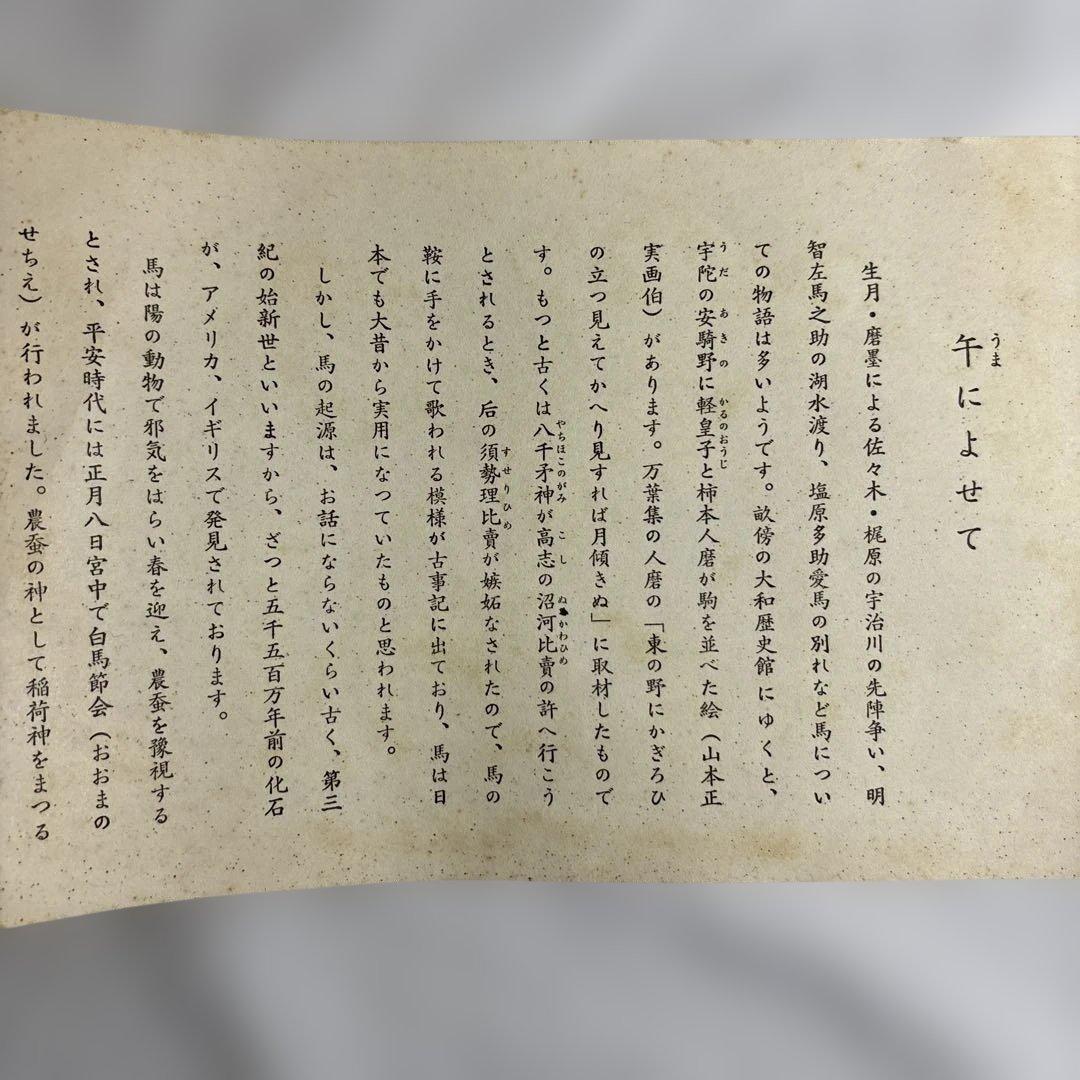 午によせて
生月・磨墨による佐々木・梶原の宇治川の先陣争い、明
智左馬之助の湖水渡り、塩原多助愛馬の別れなど馬につい
ての物語は多いようです。畝傍の大和歴史館にゆくと、
宇陀の安騎野に軽皇子と柿本人磨が駒を並べた絵（山本正
実画伯）があります。万葉集の人磨の「東の野にかぎろひ
の立つ見えてかへり見すれば月傾きぬ」に取材したもので
す。もつと古くは八千矛神が高志の沼河比賣の許へ行こう
とされるとき、后の須勢理比賣が嫉妬なされたので、馬の
鞍に手をかけて歌われる模様が古事記に出ており、馬は日
本でも大昔から実用になつていたものと思われます。
しかし、馬の起源は、お話にならないくらい古く、第三
紀の始新世といいますから、ざつと五千五百万年前の化石
が、アメリカ、イギリスで発見されております。
馬は陽の動物で邪気をはらい春を迎え、農蚕を豫視する
とされ、平安時代には正月八日宮中で白馬節会（おおまの
せちえ）が行われました。農蚕の神として稲荷神をまつる